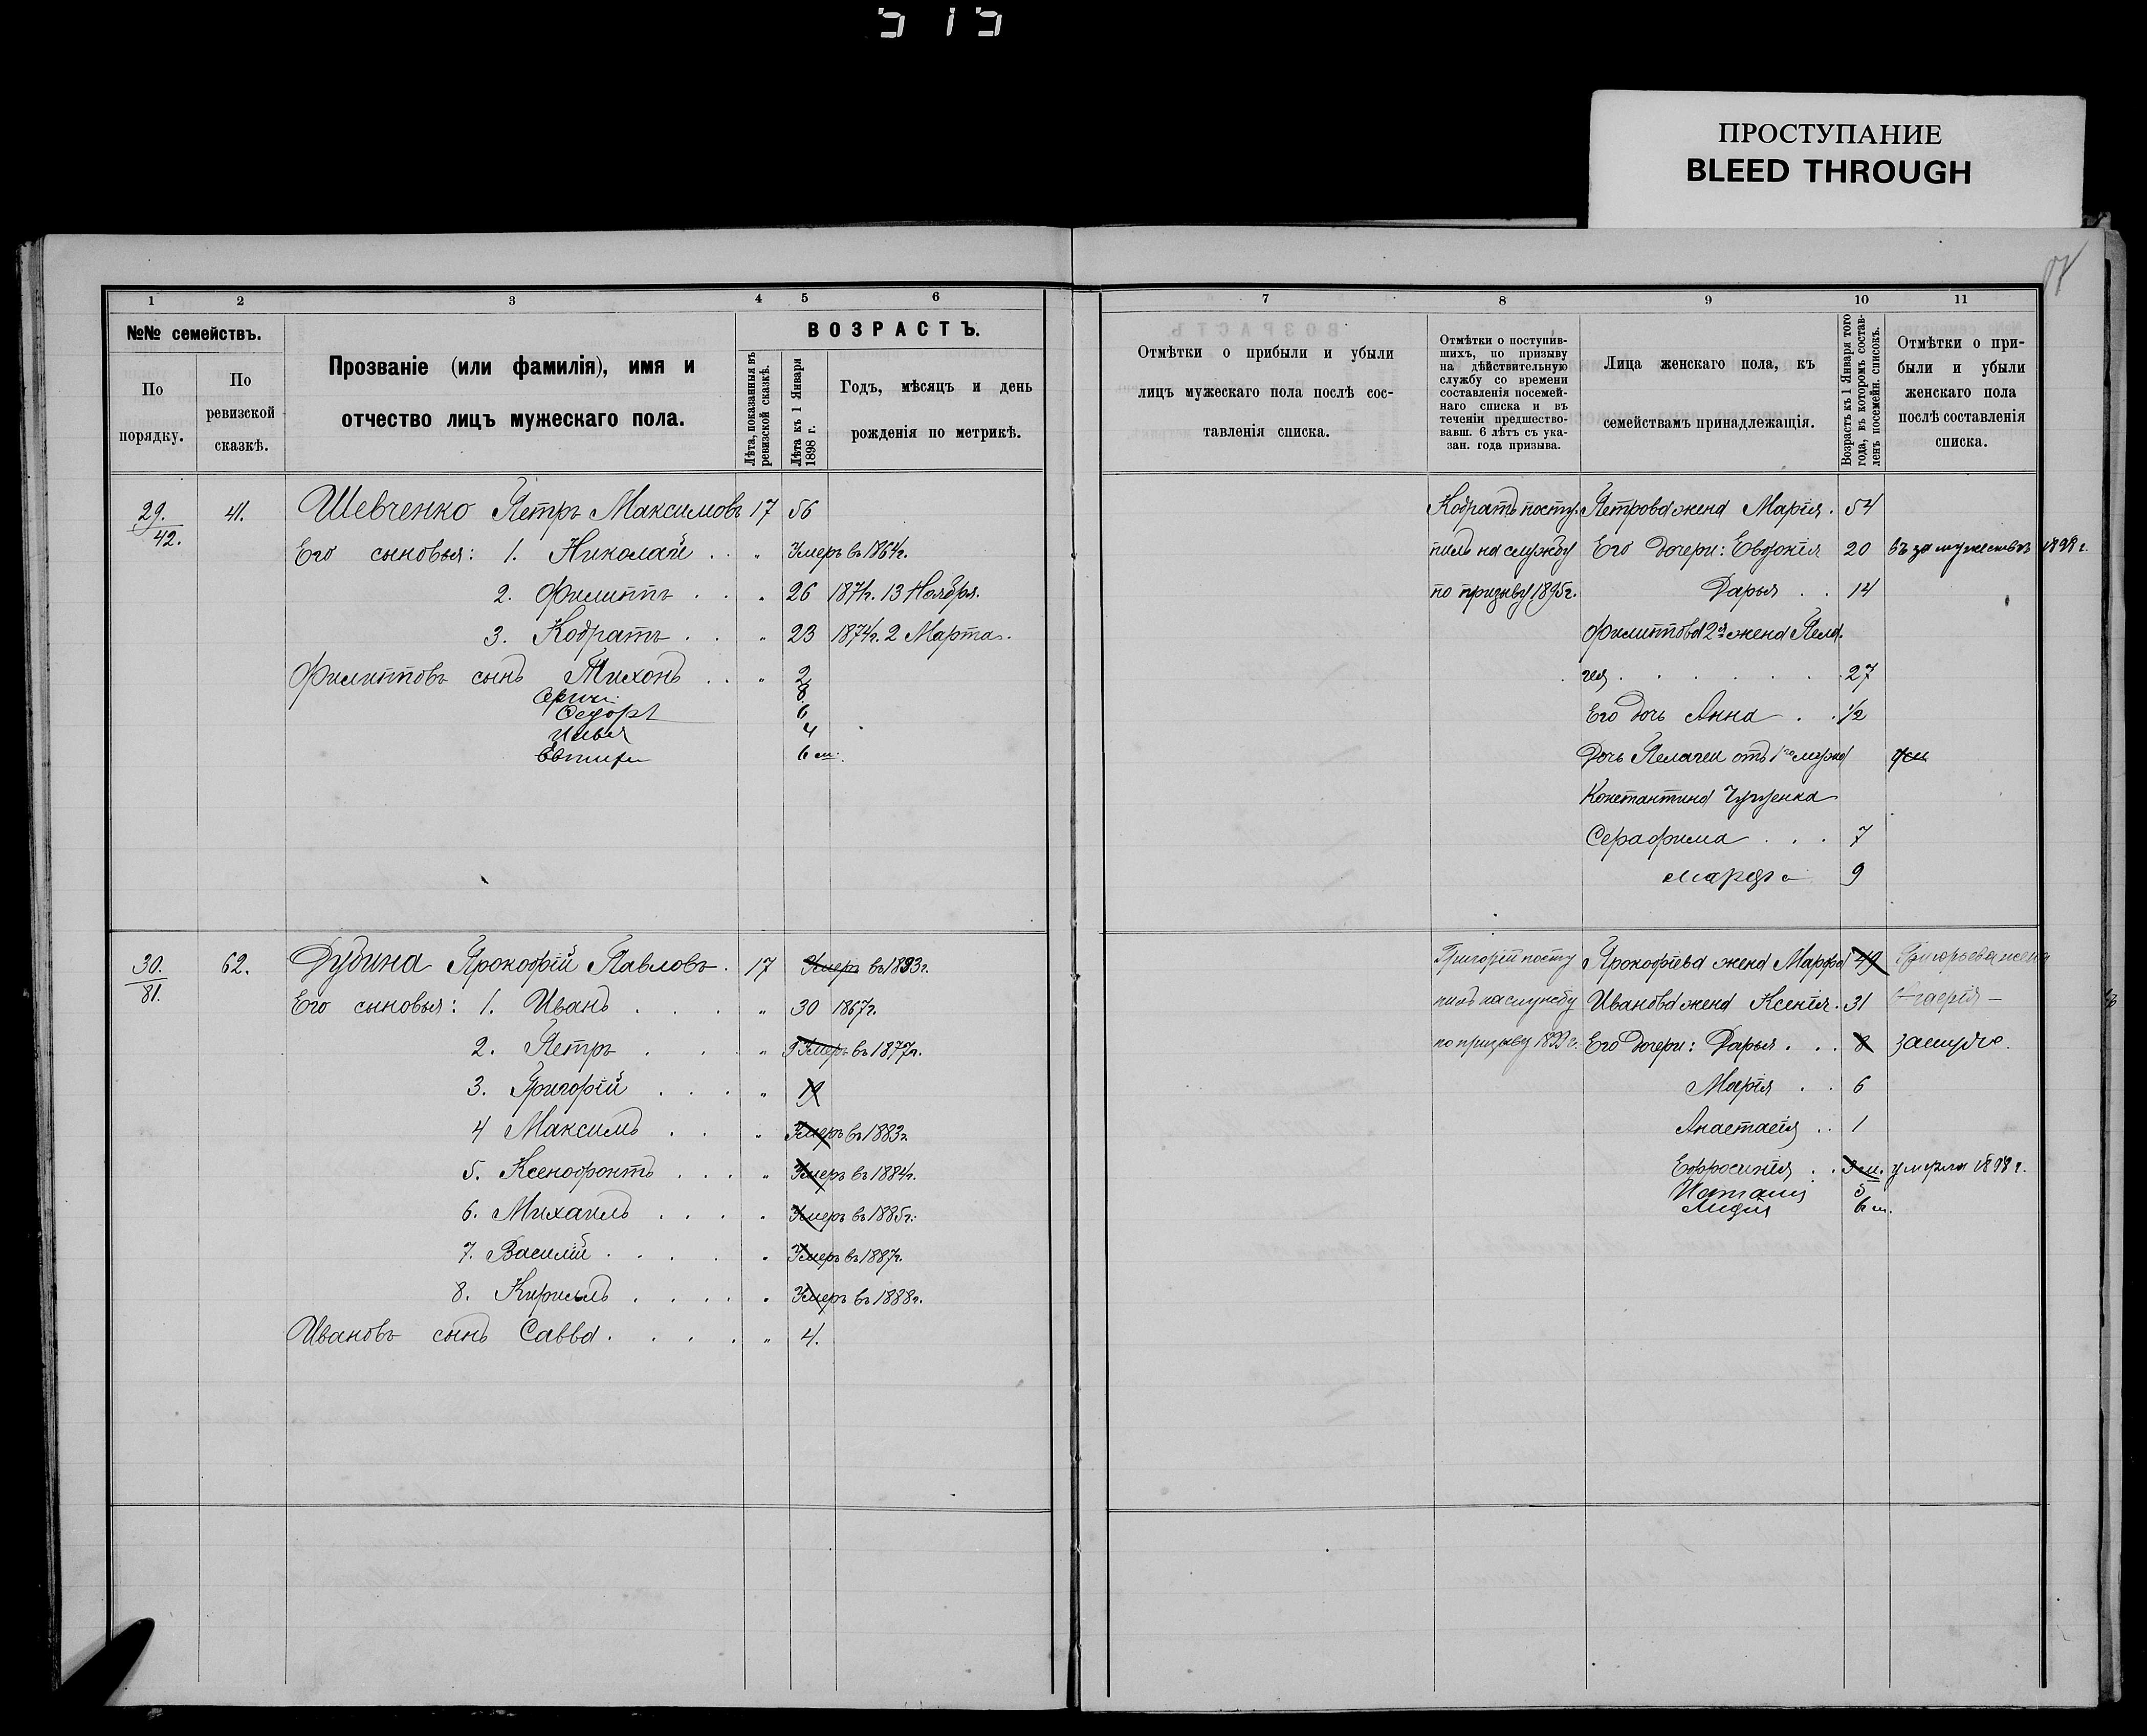 ПРОСТУПАНИЕ
BLEED THROUGH
1 2 3 4 5 6
№№ семействъ.
По порядку.
По ревизской сказкѣ.
Прозваніе (или фамилія), имя и
отчество лицъ мужескаго пола.
ВОЗРАСТЪ.
Лѣта, показанныя въ ревизской сказкѣ.
Лѣта къ 1 Января 1898 г.
Годъ, мѣсяцъ и день
рожденія по метрикѣ.
29. 42. 41. Шевченко Петръ Максимовъ 17 56
Его сыновья: 1. Николай . . „ Умеръ въ 1864г.
2. Филиппъ . . „ 26 1871г. 13 Ноября.
3. Кодратъ . . „ 23 1874г. 2 Марта.
Филипповъ сынъ Тихонъ . . „ 2
8
Федоръ 6
Илья 4
Евтифи 6 м.
30. 81. 62. Дубина Прокофій Павловъ. 17 Умеръ въ 1893г.
Его сыновья: 1. Иванъ . . . „ 30 1867г.
2. Петръ . . . „ Умеръ въ 1877г.
3. Григорій . . . „ 19
4 Максимъ . . „ Умеръ въ 1883г.
5. Ксенофонтъ . . . „ Умеръ въ 1884г.
6. Михаилъ . . . . Умеръ въ 1885г.
7. Василій . . . . „ Умеръ въ 1887г.
8. Кирилъ . . . . „ Умеръ въ 1888г.
Ивановъ сынъ Савва . . . . „ 4.
7 8 9 10 11
Отмѣтки о прибыли и убыли
лицъ мужескаго пола послѣ сос-
тавленія списка.
Отмѣтки о поступив-
шихъ, по призыву
на дѣйствительную
службу со времени
составленія посемей-
наго списка и въ
теченіи предшество-
вавш. 6 лѣтъ съ ука-
зан. года призыва.
Лица женскаго пола, къ
семействамъ принадлежащія.
Возрастъ къ 1 Января того
года, въ которомъ состав-
ленъ посемейн. списокъ.
Отмѣтки о при-
были и убыли
женскаго пола
послѣ составленія
списка.
Кодратъ посту- Петрова жена Марія . 54
пилъ на службу Его дочери: Евдокія 20 въ замужествѣ 1898 г.
по призыву 1895г. Дарья . . 14
Филиппова 2я жена Пела-
гея . . . . . . 27
Его дочь Анна . . 1/2
Дочь Пелагеи отъ 1го мужа
Константина
Серафима . . . 7
Марфа 9
Григорій посту Прокофіева жена Марфа 49 Григорьева жена
пилъ на службу Иванова жена Ксенія . 31
по призыву 1899 г. Его дочери: Дарья . . . 8 замуже.
Марія . . 6
Анастасія . . 1
Ефросинія . . 9 м. умерла 1898 г.
5
Лидия 6 м.